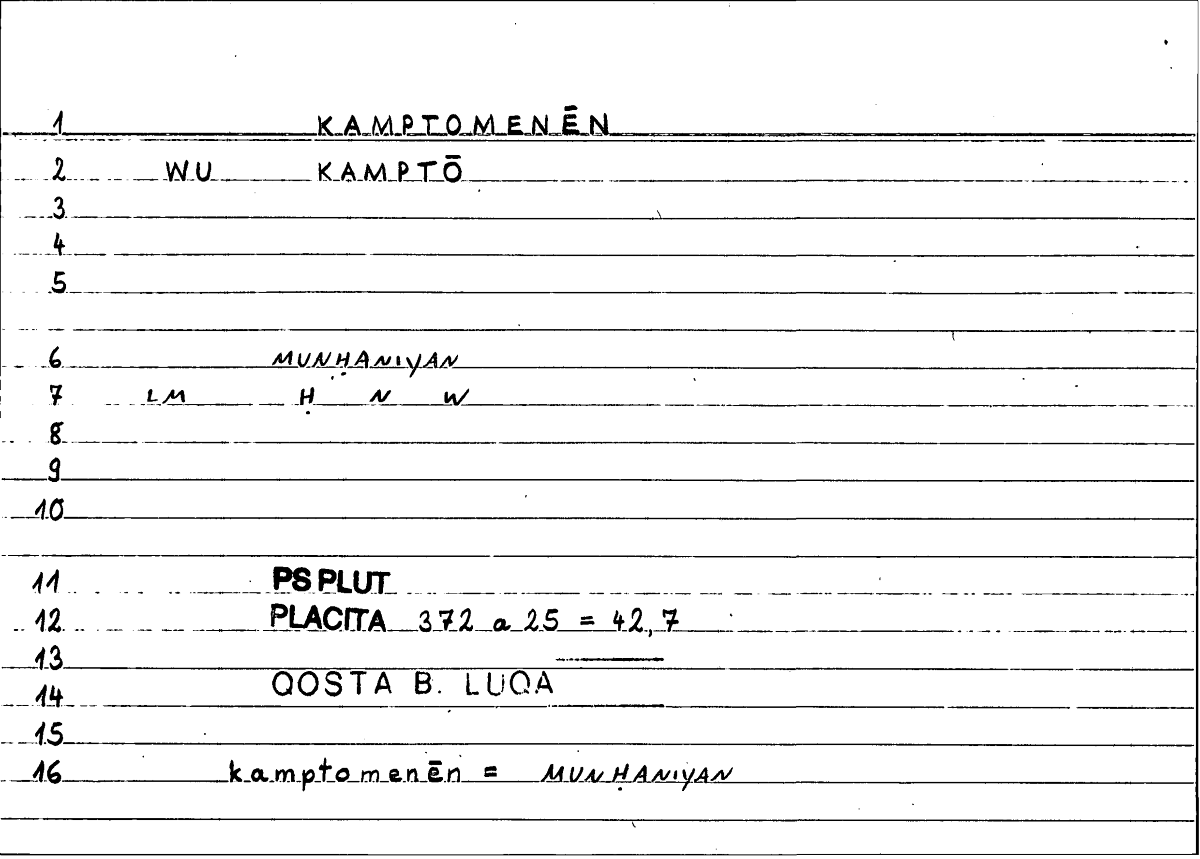 1 KAMPTOMENĒN
2 WU KAMPTŌ
3
4
5
6 MUNḤANIYAN
7 LM Ḥ N W
8
9
10
11 PS PLUT
12 PLACITA 372 a 25 = 42,7
13
14 QOSTA B. LUQA
15
16 kamptomenēn = MUNḤANIYAN